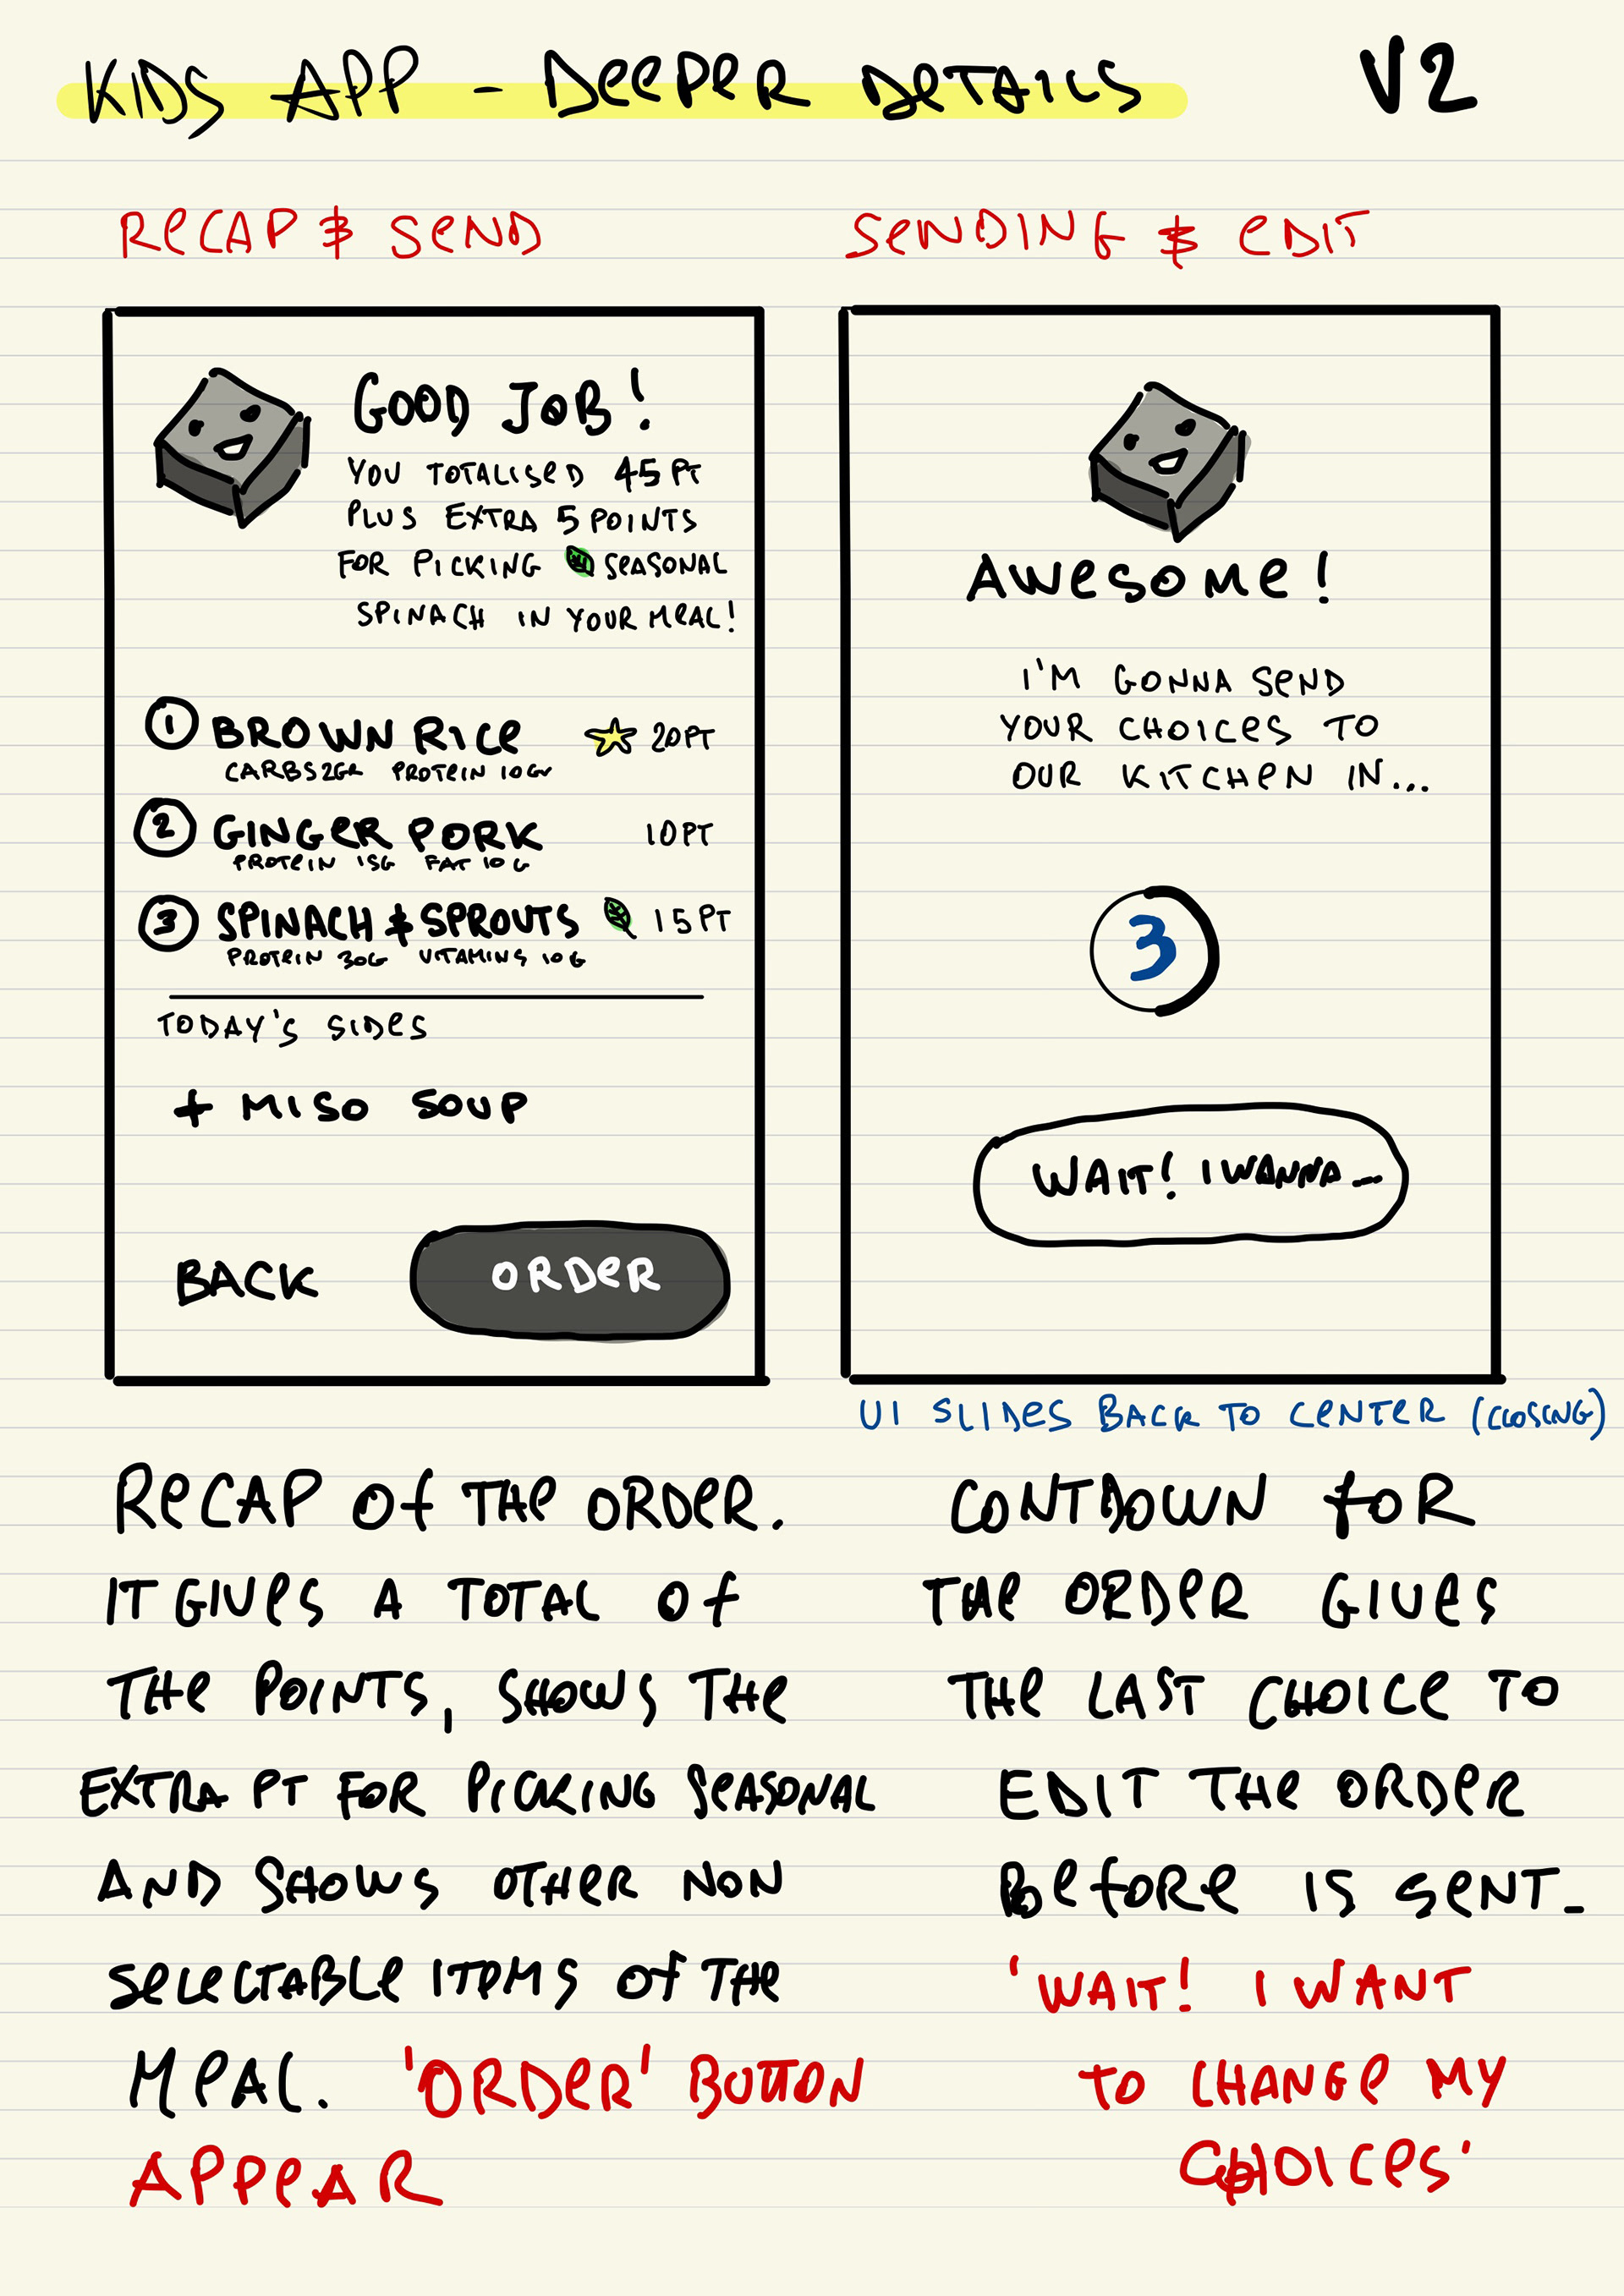 KIDS APP - DEEPER DETAILS V2
RECAP & SEND
GOOD JOB!
YOU TOTALISED 45 PT
PLUS EXTRA 5 POINTS
FOR PICKING SEASONAL
SPINACH IN YOUR MEAL!
1 BROWN RICE 20PT
CARBS 2GR PROTEIN 10GR
2 GINGER PORK 10PT
PROTEIN 15G FAT 10G
3 SPINACH & SPROUTS 15PT
PROTEIN 30G VITAMINS 10G
TODAY'S SIDES
+ MISO SOUP
BACK ORDER
RECAP OF THE ORDER.
IT GIVES A TOTAL OF
THE POINTS, SHOWS THE
EXTRA PT FOR PICKING SEASONAL
AND SHOWS OTHER NON
SELECTABLE ITEMS OF THE
MEAL. 'ORDER' BUTTON
APPEAR
SENDING & EDIT
AWESOME!
I'M GONNA SEND
YOUR CHOICES TO
OUR KITCHEN IN...
3
WAIT! I WANNA...
UI SLIDES BACK TO CENTER (CLOSING)
CONTDOWN FOR
THE ORDER GIVES
THE LAST CHOICE TO
EDIT THE ORDER
BEFORE IS SENT_
'WAIT! I WANT
TO CHANGE MY
CHOICES'